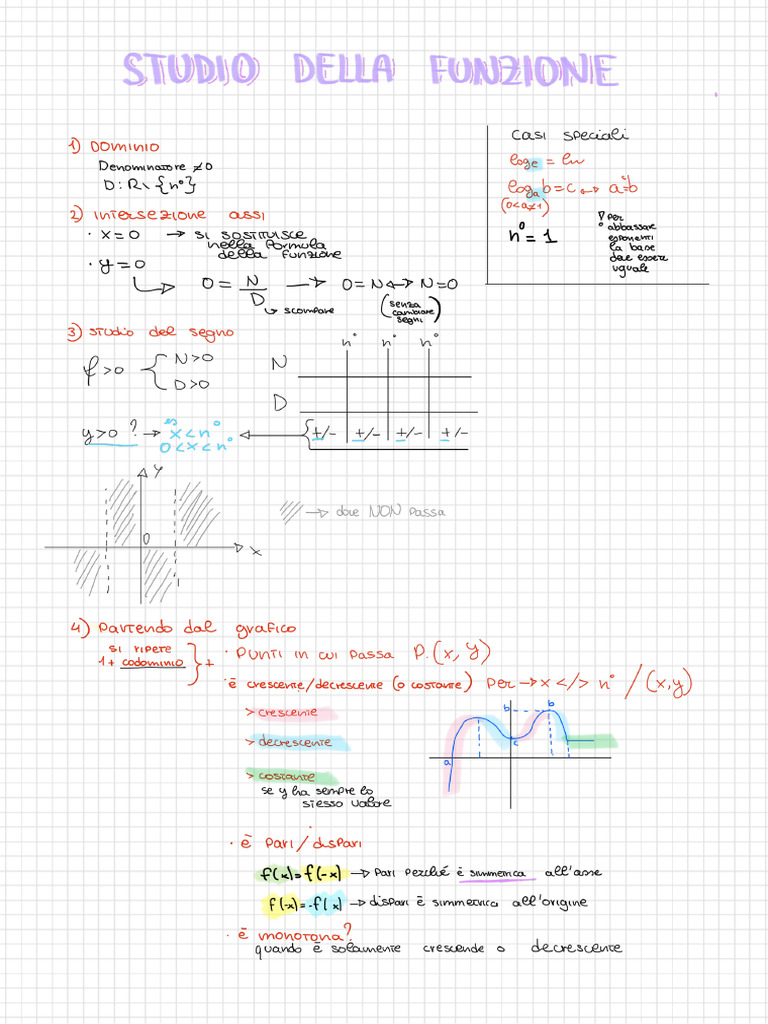 STUDIO DELLA FUNZIONE
1) DOMINIO
Denominatore ≠0
D: R\ {n°}
2) intersezione assi
· x=0 → si sostituisce
nella formula
della funzione
· y=0
0 = N/D → 0=N ↔ N=0
scompare
(senza
cambiare
segni)
casi speciali
loge = ln
logab=c ↔ a^c=b
(0<a≠1)
n° = 1
per
abbassare
esponenti
la base
deve essere
uguale
3) studio del segno
f>0 { N>0
D>0
n° n° n°
N
D
+/- +/- +/- +/-
y>0 ? → es x<n°
0<x<n°
y
0
x
→ dove NON passa
4) partendo dal grafico
si ripere
1+ codominio } +
· punti in cui passa P.(x, y)
· è crescente/decrescente (o costante) per → x </> n° / (x,y)
> crescente
> decrescente
> costante
se y ha sempre lo
stesso valore
b b
c
a
· è pari/dispari
f(x)=f(-x) → pari perché è simmetrica all'asse
f(-x)=-f(x) → dispari è simmetrica all'origine
· è monotona?
quando è solamente crescende o decrescente